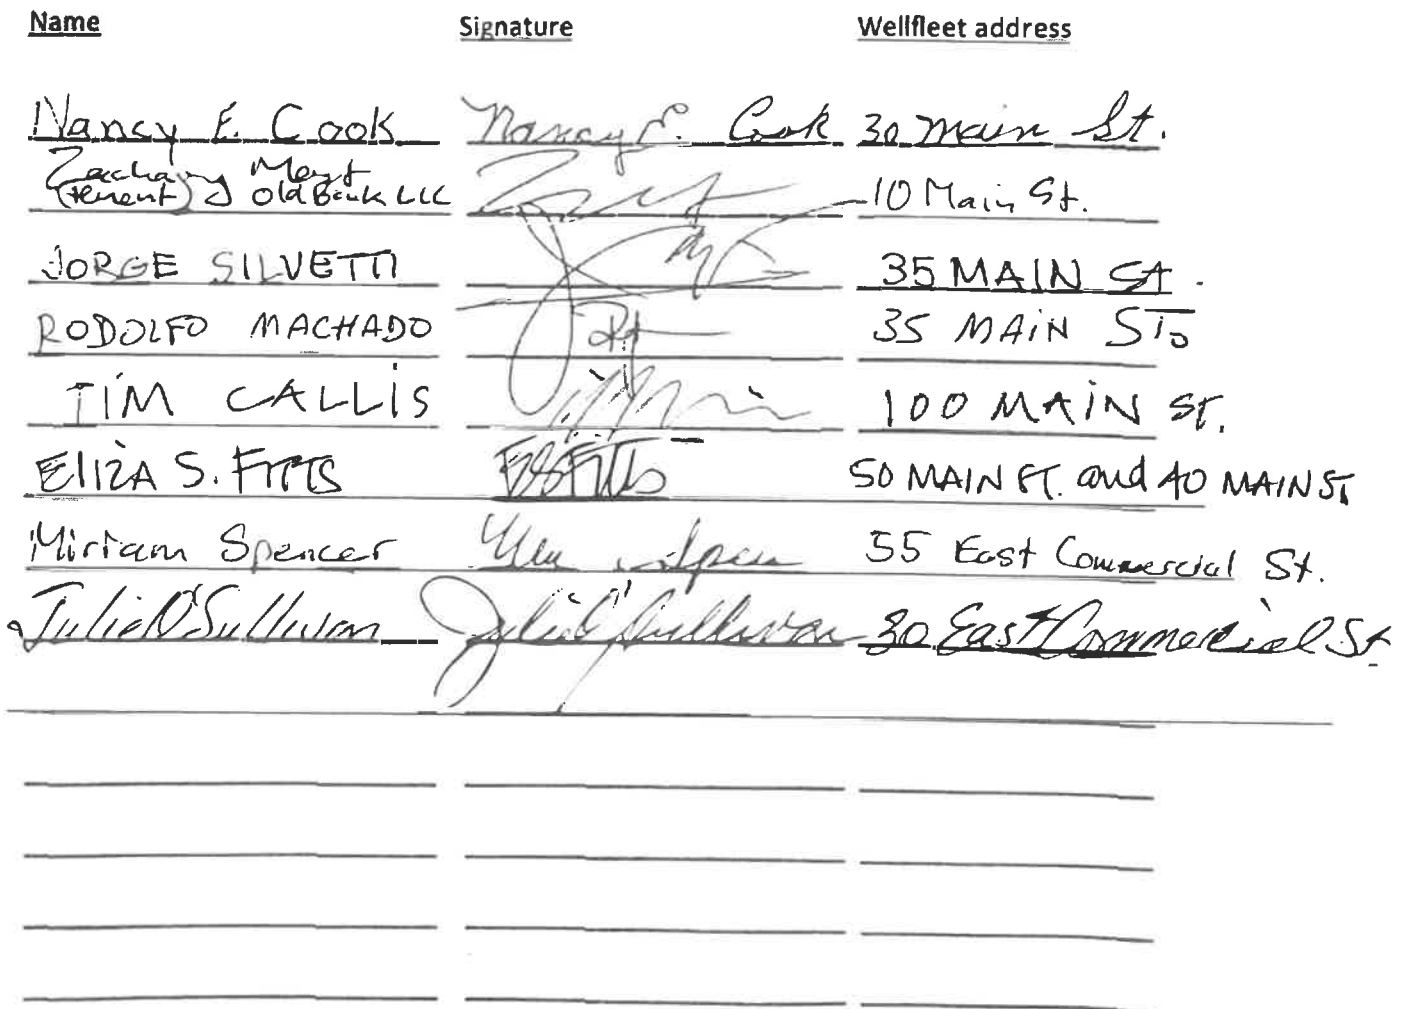 Name Signature Wellfleet address
Nancy E. Cook Nancy E. Cook 30 Main St.
Zachary
(tenent) Old Bank LLC 10 Main St.
JORGE SILVETTI 35 MAIN St.
RODOLFO MACHADO 35 MAIN ST.
TIM CALLIS 100 MAIN ST.
ELIZA S. FITTS ES FITTS 50 MAIN ST. and 40 MAIN ST
Miriam Spencer 55 East Commercial St.
Julie O'Sullivan Julie O'Sullivan 30 East Commercial St